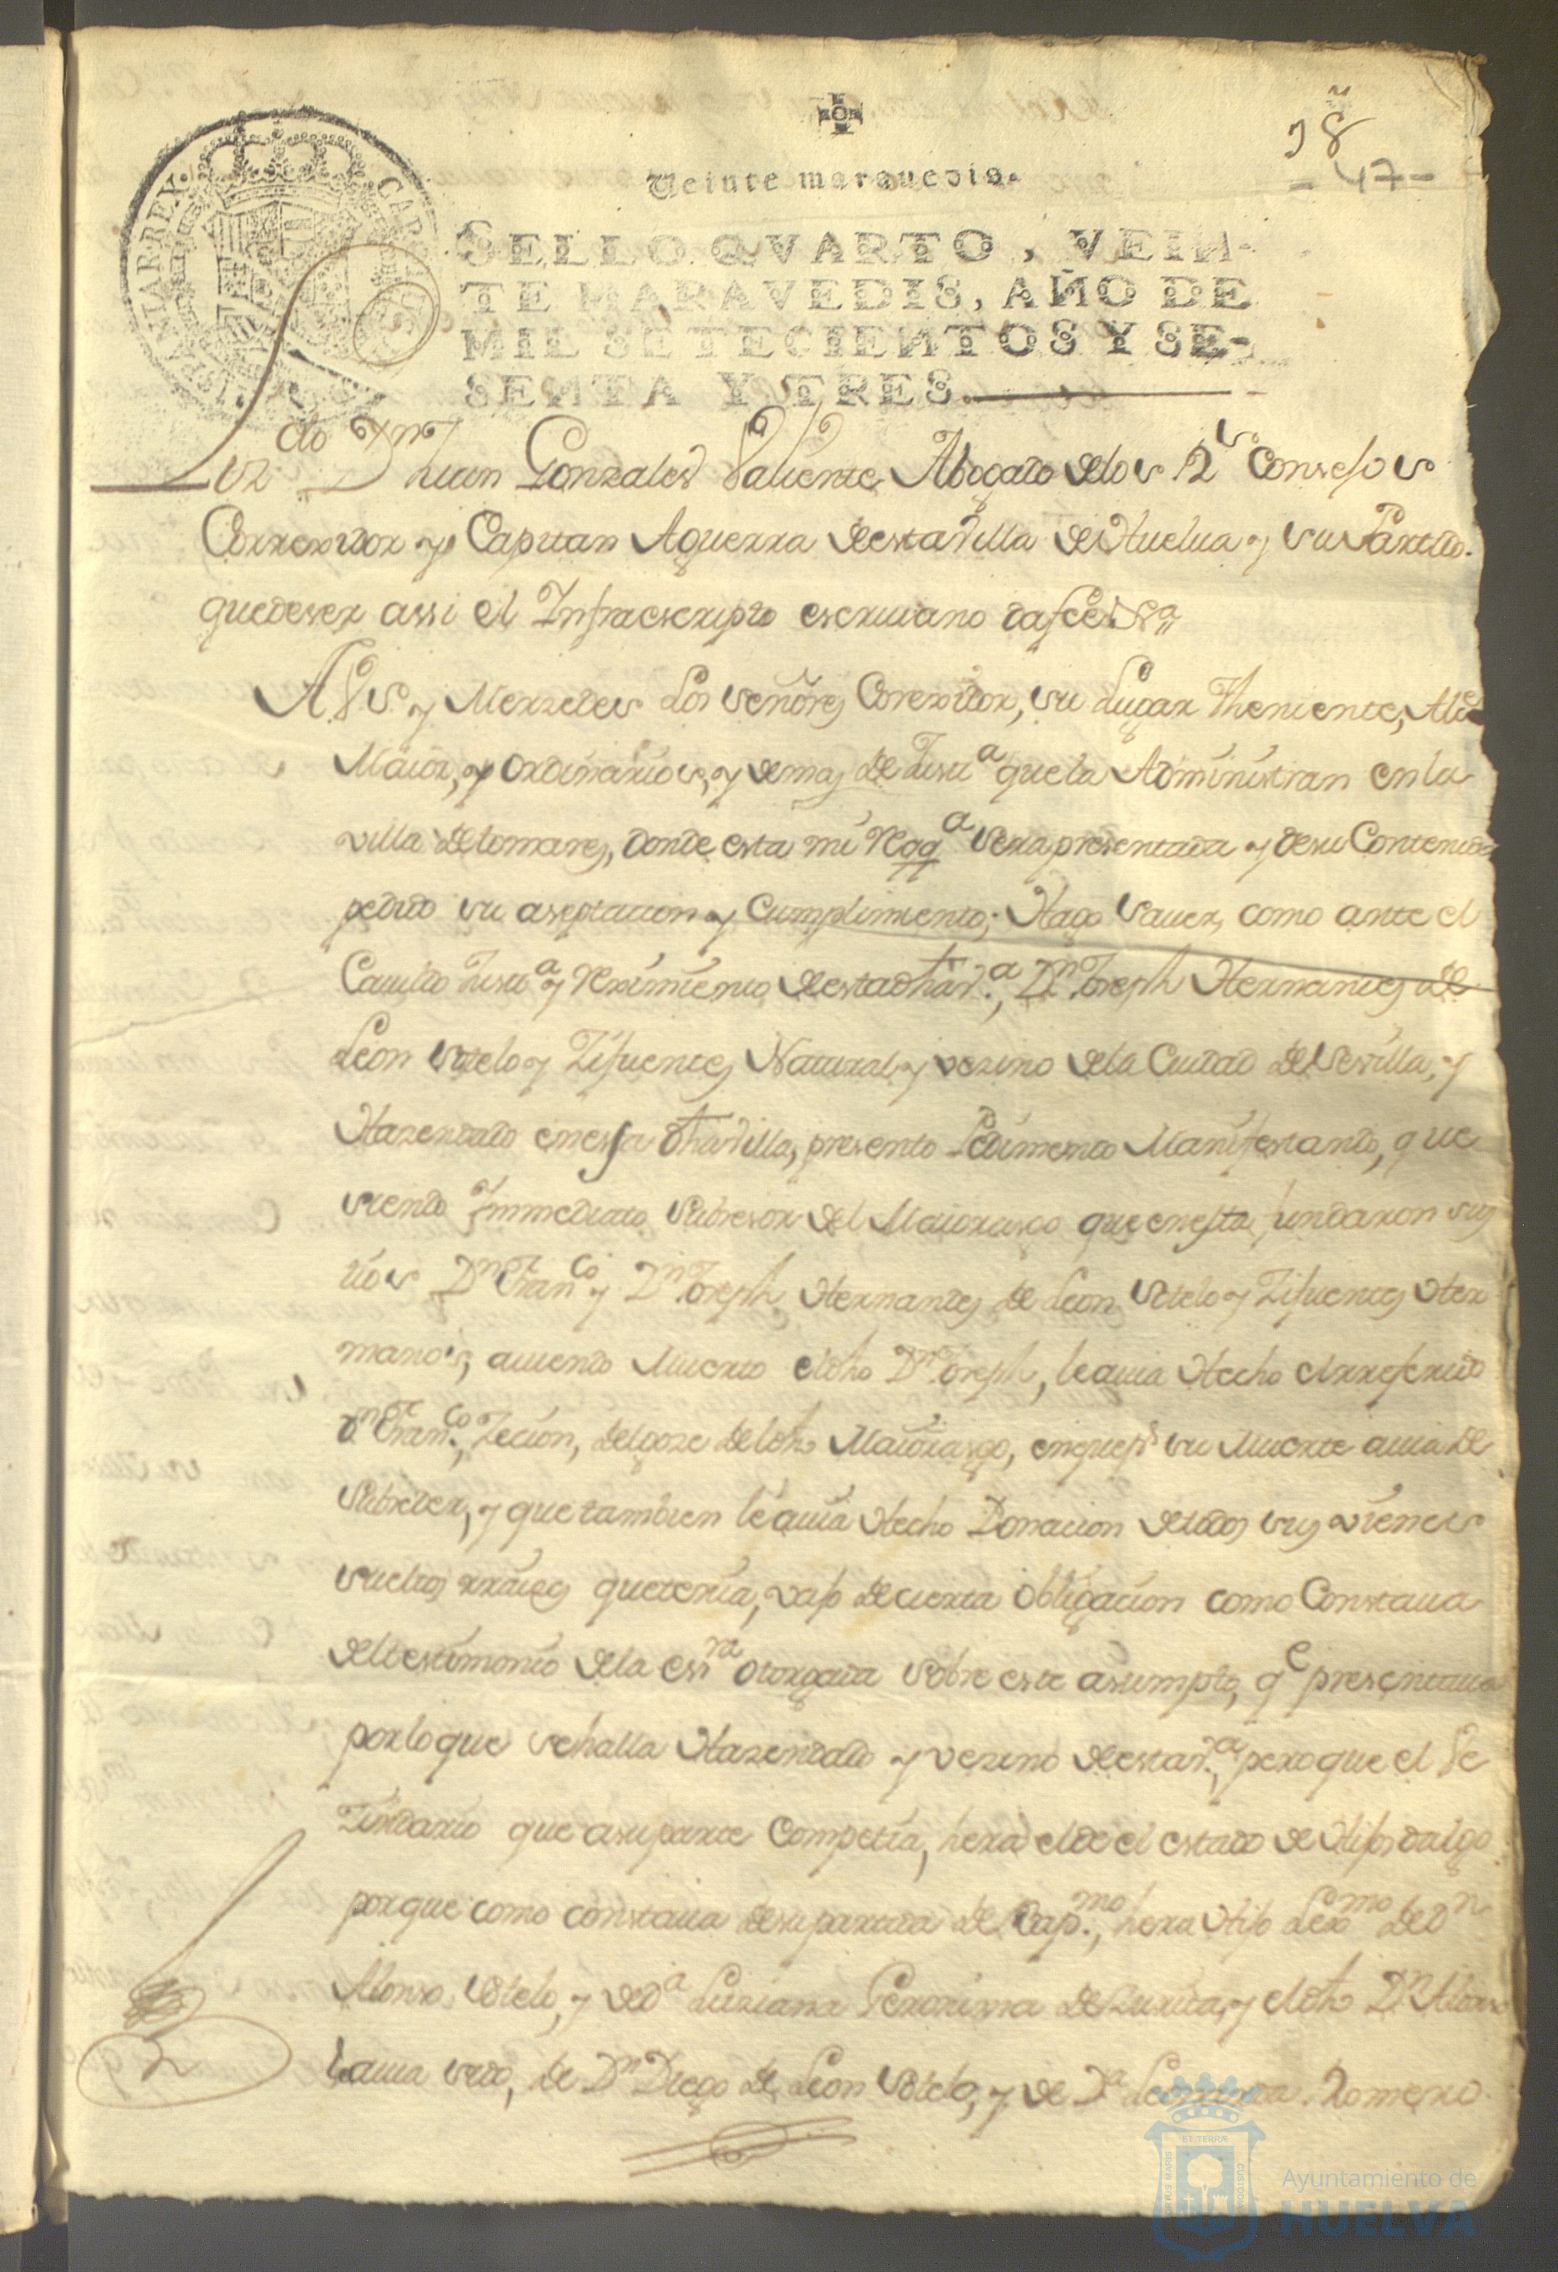 18
- 47 -
Veinte maravedis.
SELLO QVARTO, VEIN-
TE MARAVEDIS, AÑO DE
MIL SETECIENTOS Y SE-
SENTA Y TRES.
CAR HISPANIAR REX
Lizdo Dn Juan Gonzales Valiente Abogado delos Rs Consejos
Correxidor y Capitan Aguerra destavilla de Huelva y su Partido.
quedeser assi el Infraescripto escriuano dafee
A SS. y Merzedes Los señores Corexidor, su Lugar Theniente, Alcs
Maior, y Ordinarios, y demas de Justa quela Administran en la
villa de tomares, donde esta mi Reqa sera presentada y desu Contenido
pedido su aseptacion y Cumplimiento; Hago Sauer, como ante el
Cauildo Justa y Reximiento destadha va., Dn Joseph Hernandes de
Leon Sotelo y Zifuentes Natural y vezino dela Ciudad de Sevilla, y
Hazendado enesta dhavilla, presento Pedimento Manifestando, que
siendo Immediato Subcesor del Maiorasgo que enesta fundaron sus
tios Dn Franco y Dn Joseph Hernandes de Leon Sotelo y Zifuentes Her
manos, auiendo Muerto el dho Dn Joseph, le auia Hecho el rreferido
Dn Franco, Zecion, delgoze del dho Maiorasgo, enquepr su Muerte auia de
Subceder, y que tambien le auia Hecho Donacion detodos sus vienes
sueltos rraises quetenia, vajo decierta Obligacion como Constaua
del testimonio dela essra otorgada sobre este asumpto, qe presentaua
porlo que sehalla Hazendado y vezino de estava, pero que el Ve
zindario que asuparte Competia, hera el de el estado de Hijosdalgo
porque como constaua desupartida de Bapmo, hera Hijo Lexmo de Dn
Alonso Sotelo, y de Da Luziana Geronima de Zurita, y el dho Dn Alonso
hauia sido, de Dn Diego de Leon Sotelo, y de Da Romero
Ayuntamiento de
HUELVA